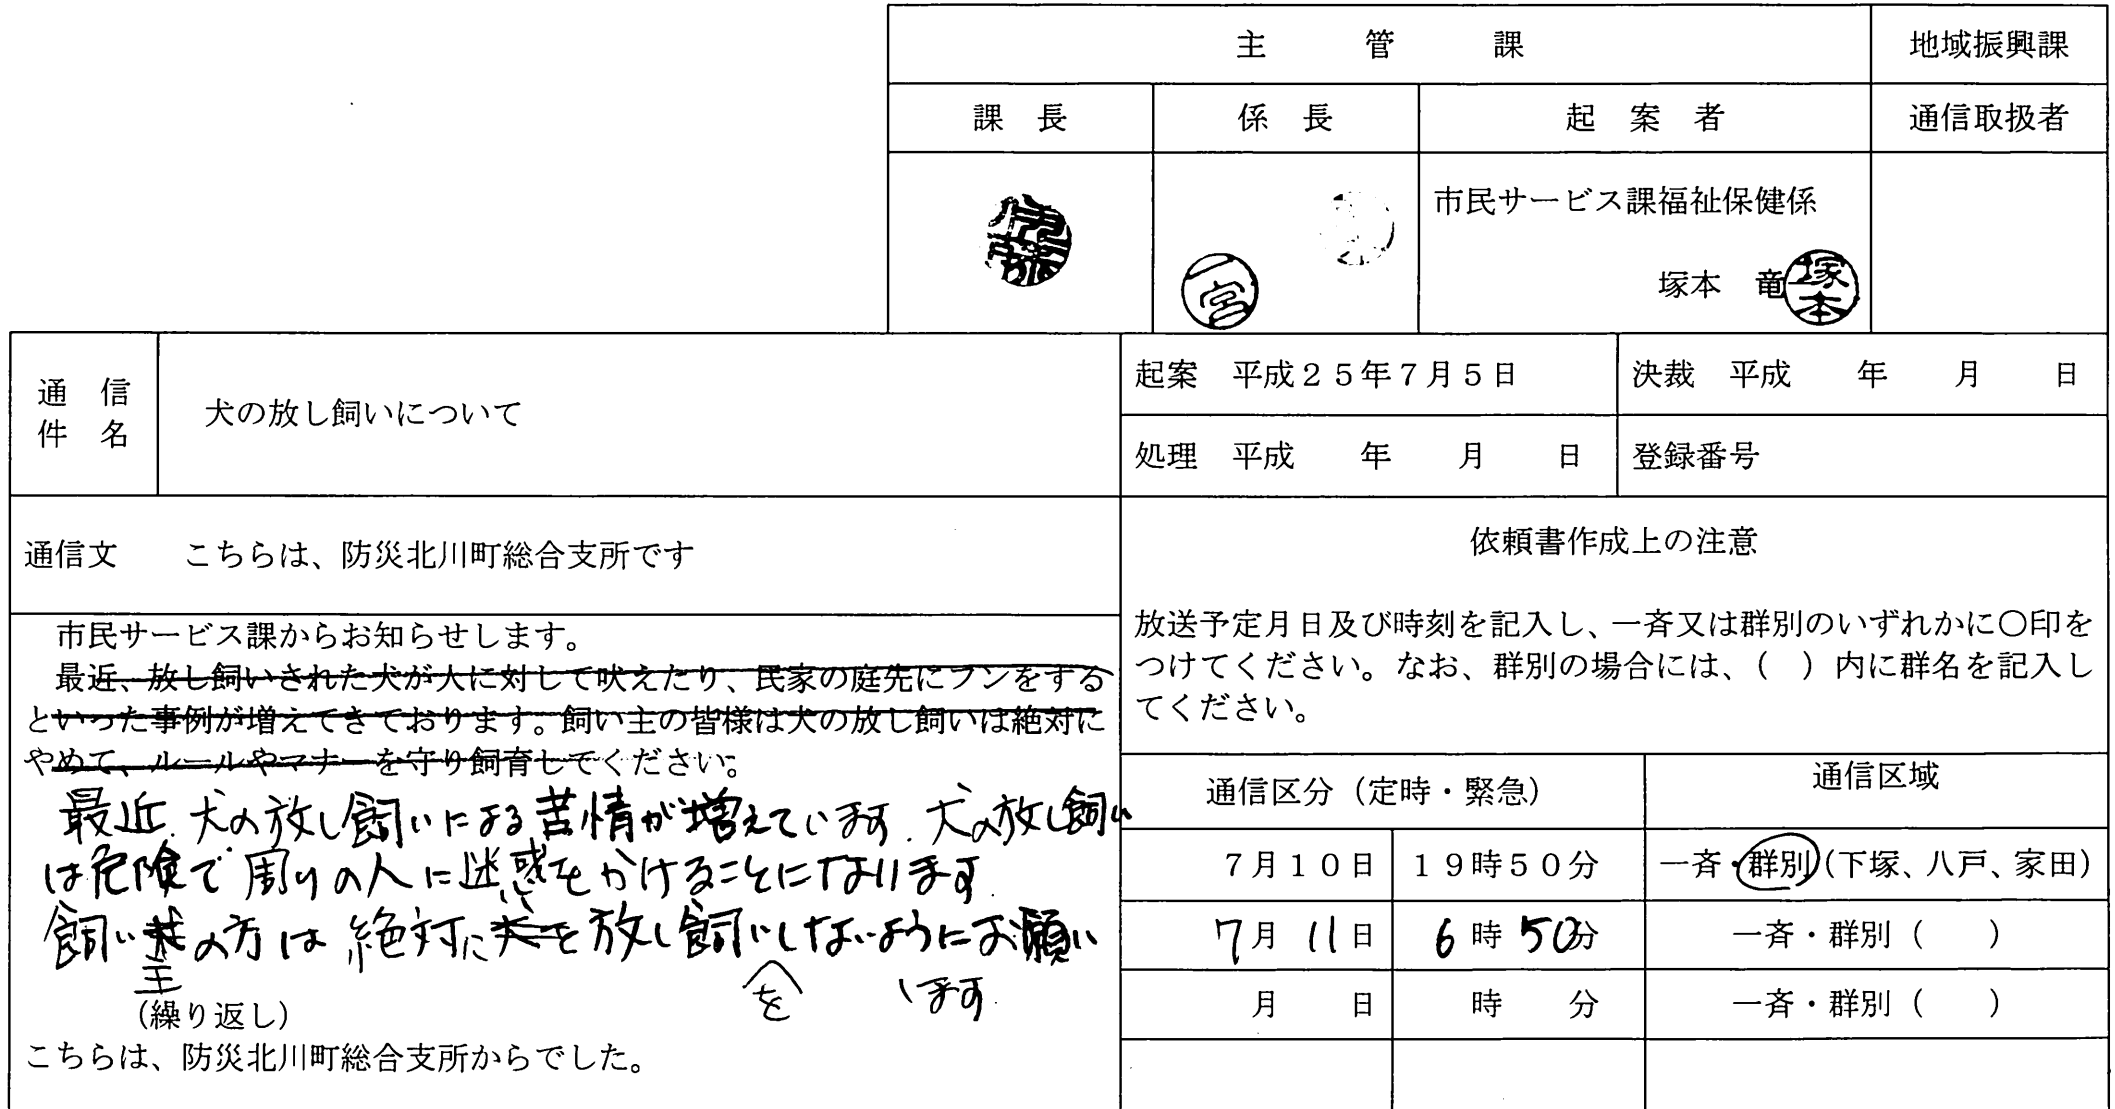 主管課 地域振興課
課長 係長 起案者 通信取扱者
市民サービス課福祉保健係
一宮
塚本 竜 塚本
通信件名 犬の放し飼いについて
起案 平成25年7月5日 決裁 平成 年 月 日
処理 平成 年 月 日 登録番号
通信文 こちらは、防災北川町総合支所です
市民サービス課からお知らせします。
最近、放し飼いされた犬が人に対して吠えたり、民家の庭先にフンをする
といった事例が増えてきております。飼い主の皆様は犬の放し飼いは絶対に
やめて、ルールやマナーを守り飼育してください。
最近、犬の放し飼いによる苦情が増えています。犬の放し飼い
は危険で周りの人に迷惑をかけることになります
飼い犬の方は絶対に犬を放し飼いしないようにお願い
主 を します
(繰り返し)
こちらは、防災北川町総合支所からでした。
依頼書作成上の注意
放送予定月日及び時刻を記入し、一斉又は群別のいずれかに〇印を
つけてください。なお、群別の場合には、( )内に群名を記入し
てください。
通信区分(定時・緊急) 通信区域
7月10日 19時50分 一斉・群別(下塚、八戸、家田)
7月11日 6時50分 一斉・群別( )
月 日 時 分 一斉・群別( )